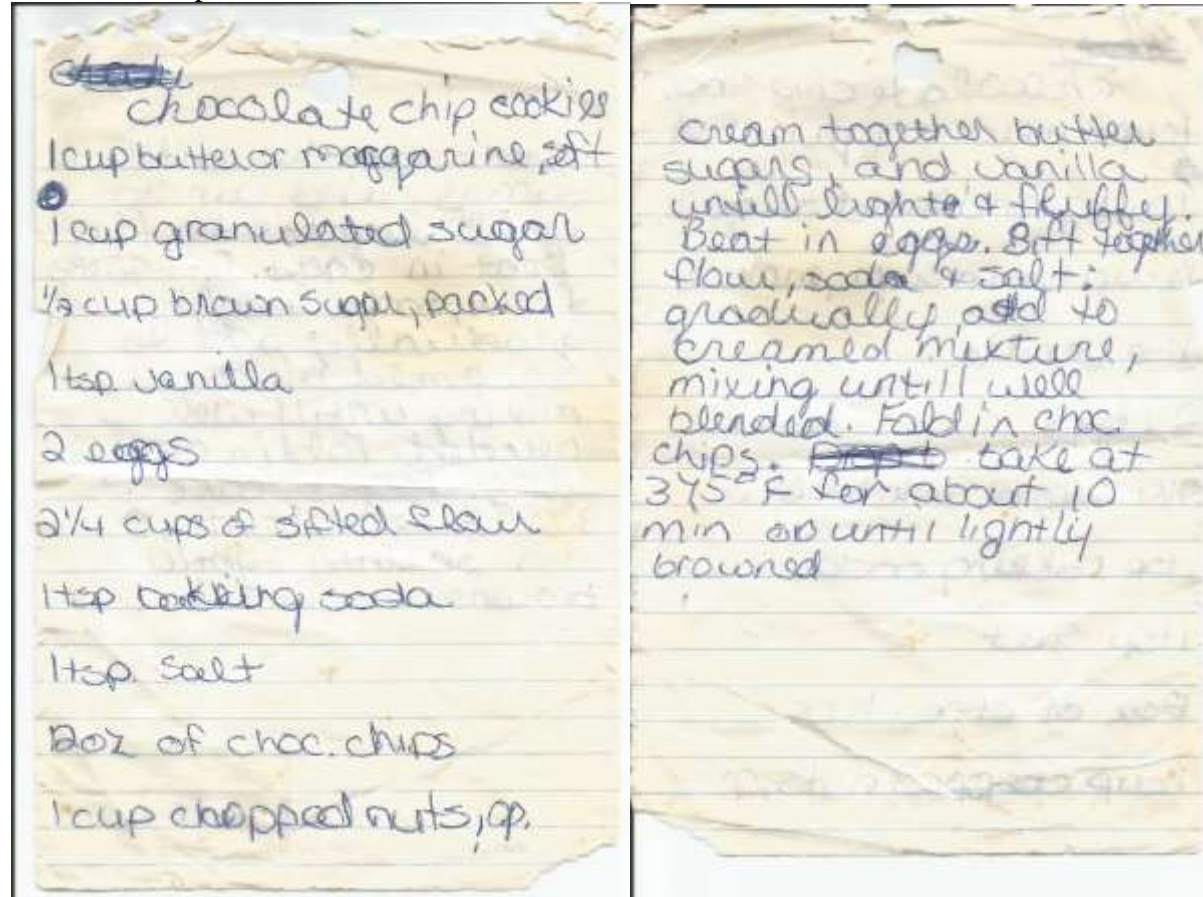 chocolate chip cookies
1 cup butter or maggarine, soft
1 cup granulated sugar
1/2 cup brown sugar, packed
1 tsp. vanilla
2 eggs
2 1/4 cups of sifted flour
1 tsp baking soda
1 tsp. salt
12oz of choc. chips
1 cup chopped nuts, op.
cream together butter
sugars, and vanilla
untill light & fluffy.
Beat in eggs. Sift together
flour, soda & salt;
gradually add to
creamed mixture,
mixing untill well
blended. Fold in choc.
chips. bake at
375° F for about 10
min or until lightly
browned